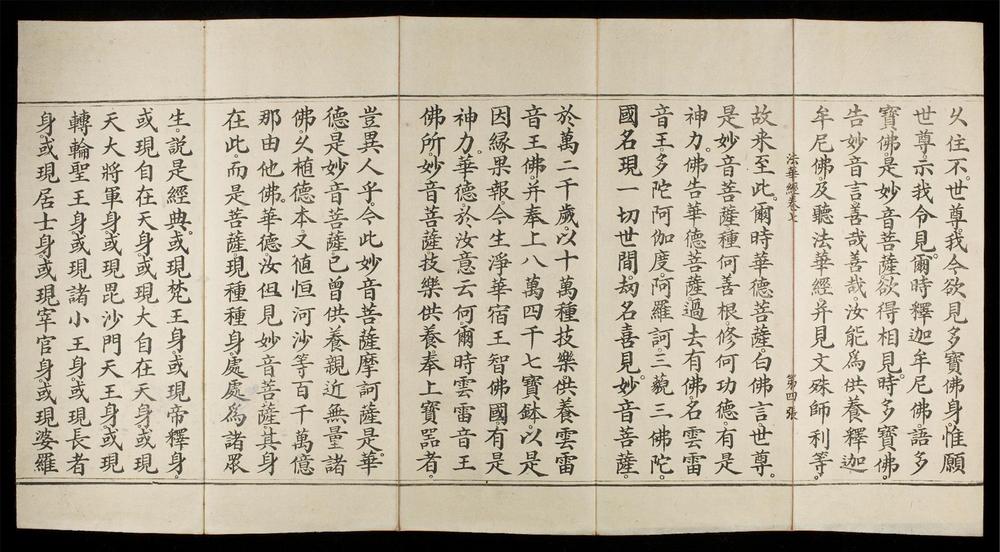 久住不。世尊。我今欲見多寶佛身。惟願
世尊。示我令見。爾時釋迦牟尼佛。語多
寶佛。是妙音菩薩。欲得相見。時多寶佛。
告妙音言。善哉善哉。汝能為供養釋迦
牟尼佛。及聽法華經。并見文殊師利等。
法華經卷七 第四張
故来至此。爾時華德菩薩。白佛言。世尊。
是妙音菩薩。種何善根。修何功德。有是
神力。佛告華德菩薩。過去有佛。名雲雷
音王。多陀阿伽度。阿羅訶。三藐三佛陀。
國名現一切世間。劫名喜見。妙音菩薩。
於萬二千歲。以十萬種技樂。供養雲雷
音王佛。并奉上八萬四千七寶鉢。以是
因緣果報。今生淨華宿王智佛國。有是
神力。華德。於汝意云何。爾時雲雷音王
佛所。妙音菩薩。技樂供養奉上寶器者。
豈異人乎。今此妙音菩薩摩訶薩是。華
德。是妙音菩薩。已曾供養親近無量諸
佛。久植德本。又值恒河沙等百千萬億
那由他佛。華德。汝但見妙音菩薩。其身
在此。而是菩薩。現種種身。處處為諸眾
生。說是經典。或現梵王身。或現帝釋身。
或現自在天身。或現大自在天身。或現
天大將軍身。或現毘沙門天王身。或現
轉輪聖王身。或現諸小王身。或現長者
身。或現居士身。或現宰官身。或現婆羅